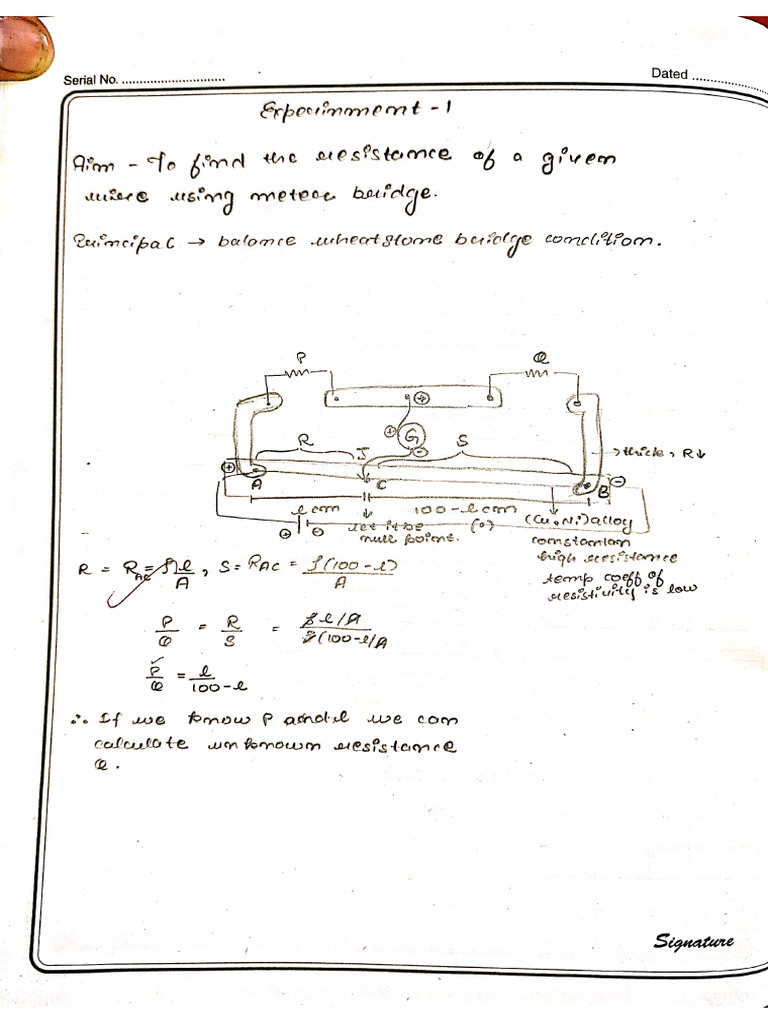 Serial No. ............................
Dated ......................
Experinment - 1
Aim - To find the resistance of a given
wire using meter bridge.
Principal → balance wheatstone bridge condition.
P
Q
+
+
G
R
J
S
-
→ thick, R↓
+
A
C
B
-
l cm
100-l cm
let it be
null point.
(•)
(Cu, Ni) alloy
constantan
high resistance
temp coeff of
resistivity is low
+ -
R = R_AC = ρl/A , S = R_AC = ρ(100-l)/A
P/Q = R/S = ρl/A / ρ(100-l/A
P/Q = l/100-l
∴ If we know P and l we can
calculate unknown resistance
Q.
Signature